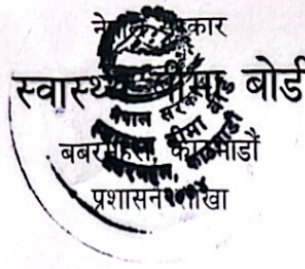 नेपाल सरकार
स्वास्थ्य बीमा बोर्ड
बबरमहल, काठमाडौं
प्रशासन शाखा